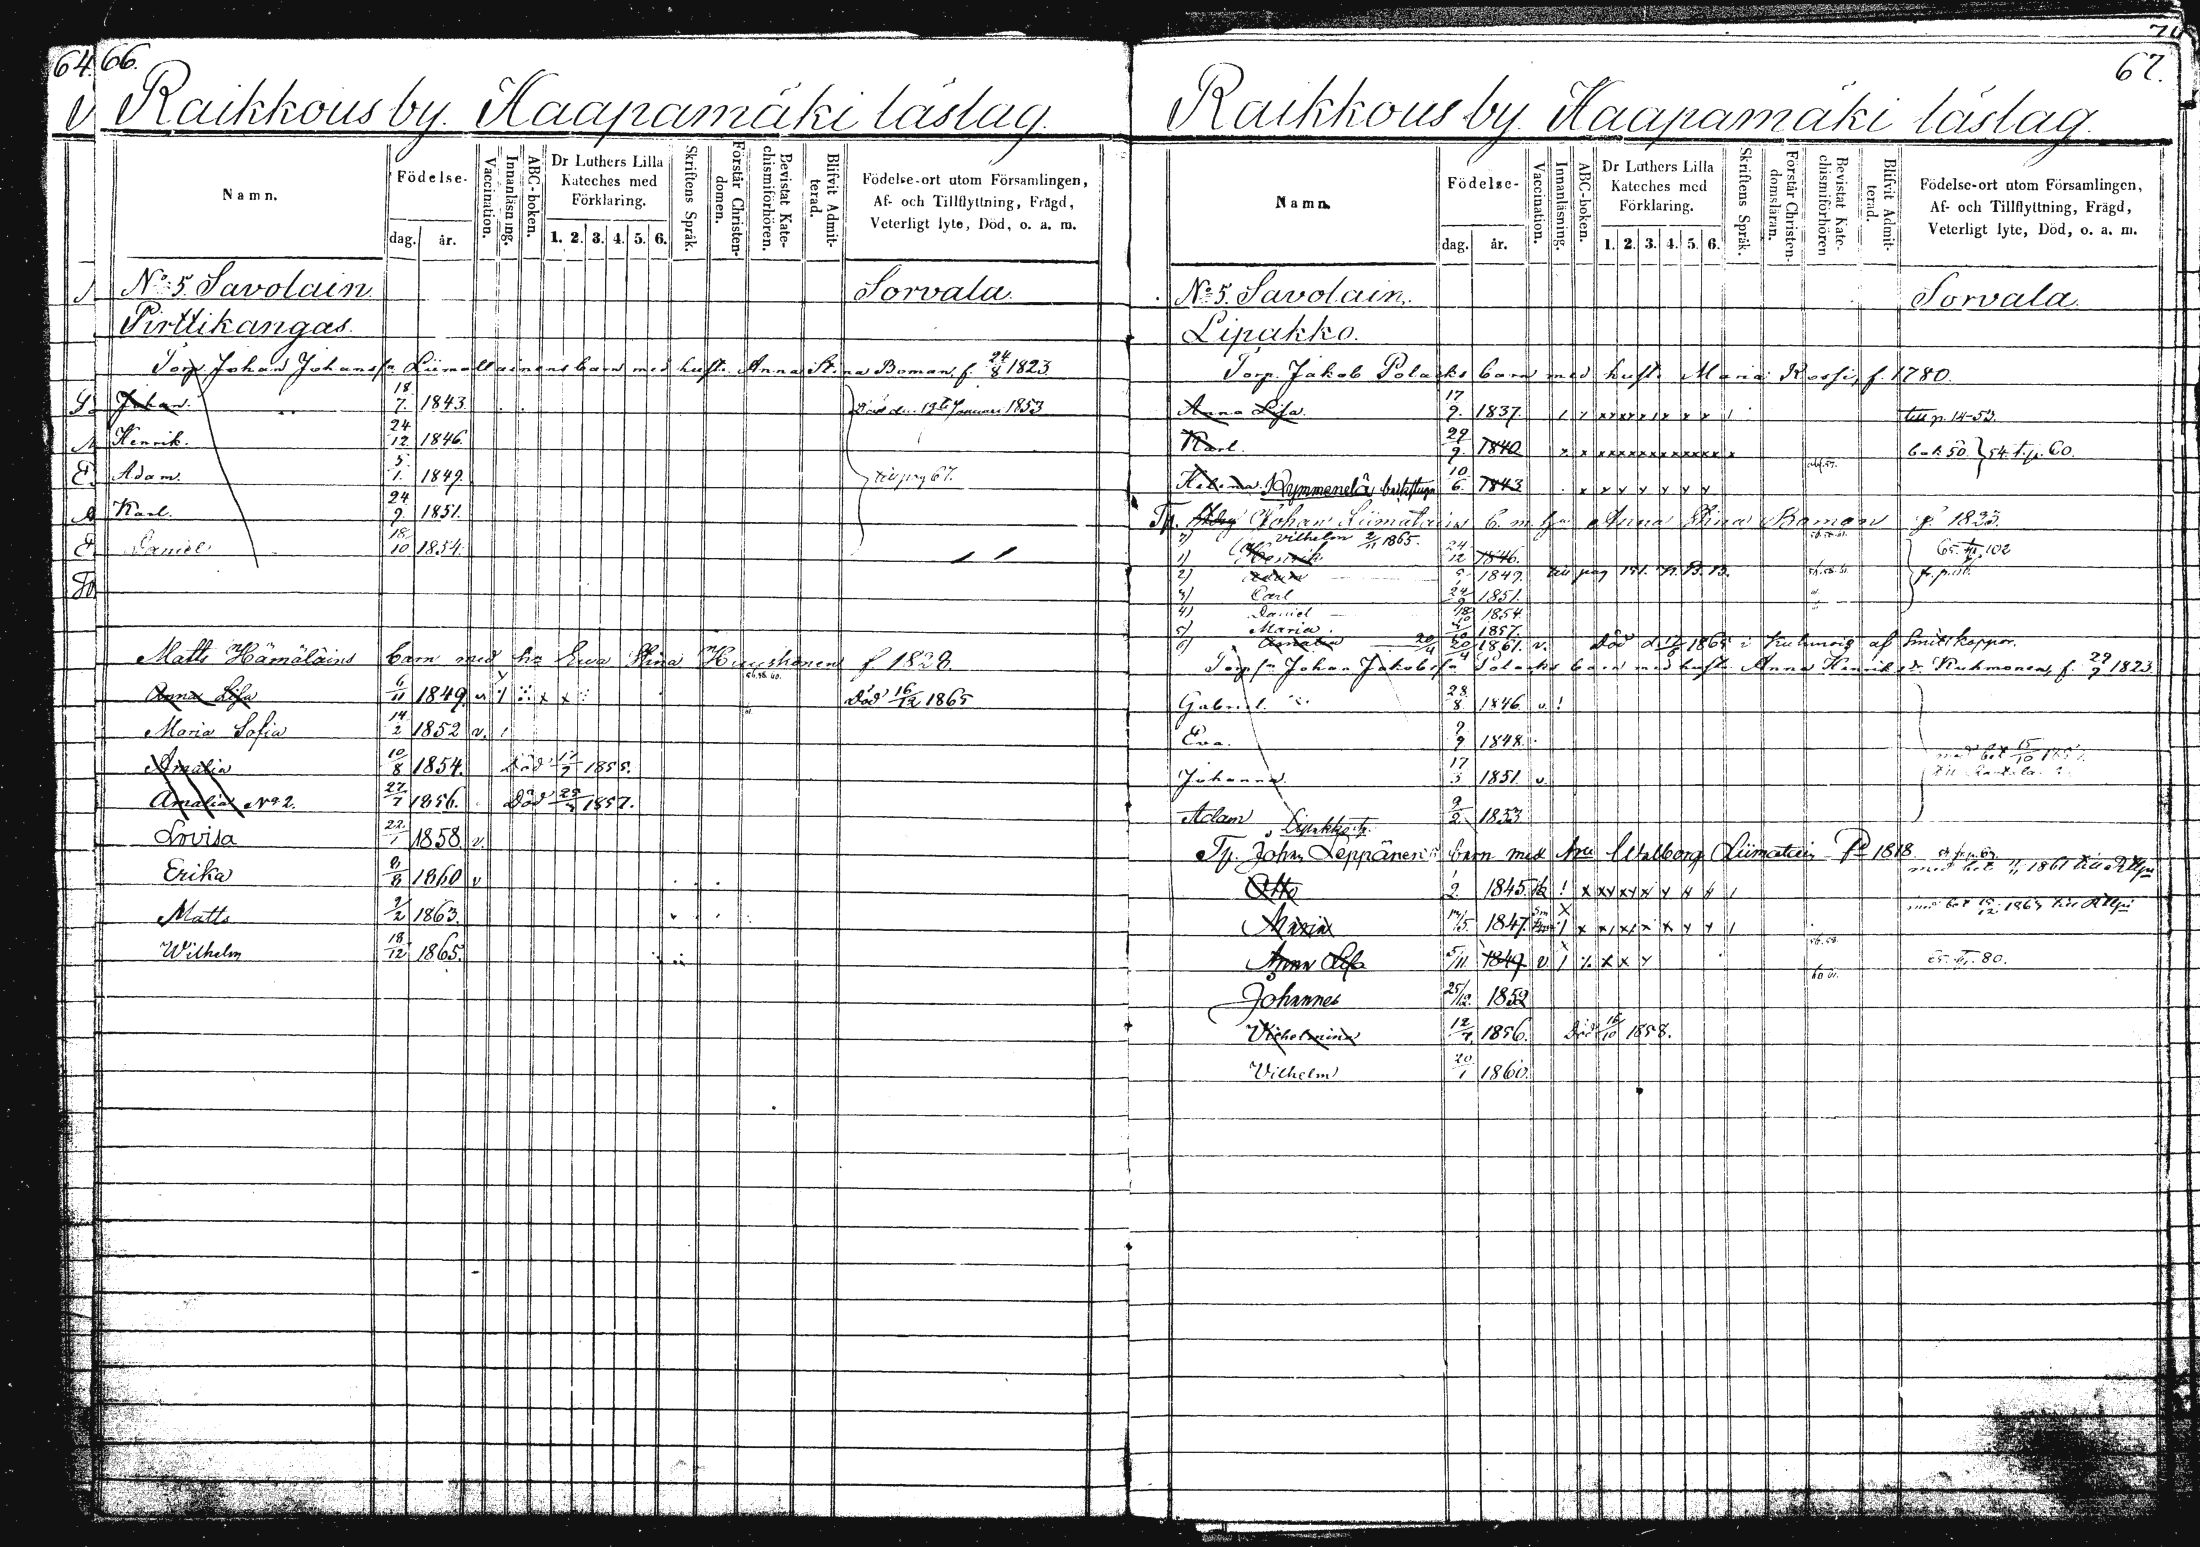 64. 66.
Raikkous by. Haapamäki läslag.
Namn.
Födelse-
dag. år.
Vaccination.
Innanläsning.
ABC-boken.
Dr Luthers Lilla Kateches med Förklaring.
1. 2. 3. 4. 5. 6.
Skriftens Språk.
Förstår Christen-domen.
Bevistat Kate-chismiförhören.
Blifvit Admit-terad.
Födelse-ort utom Församlingen,
Af- och Tillflyttning, Frägd,
Veterligt lyte, Död, o. a. m.
No 5. Savolain. Sorvala.
Pirttikangas.
Torp. Johan Johansn Liimattainens barn med hust. Anna Stina Boman, f. 24/8 1823.
Johan. 18/7. 1843. Död den 19 Januari 1853
Henrik. 24/12 1846.
Adam. 5/1. 1849. till pag 67.
Karl. 24/9. 1851.
Daniel 18/10 1854.
Matts Hämäläins barn med hu Ewa Stina f 1828.
Anna Lisa 6/11 1849. v Död 16/12 1865
Maria Sofia 14/2 1852 v.
Amalia 10/8 1854. Död 1855.
Amalia No 2. 27/7 1856. Död 1857.
Lovisa 22/1 1858. v.
Erika 8/8 1860 v
Matts 2/2 1863.
Wilhelm 18/12 1865.
67.
Raikkous by. Haapamäki läslag.
Namn.
Födelse-
dag. år.
Vaccination.
Innanläsning.
ABC-boken.
Dr Luthers Lilla Kateches med Förklaring.
1. 2. 3. 4. 5. 6.
Skriftens Språk.
Förstår Christen-domsläran.
Bevistat Kate-chismiförhören
Blifvit Admit-terad.
Födelse-ort utom Församlingen,
Af- och Tillflyttning, Frägd,
Veterligt lyte, Död, o. a. m.
No 5. Savolain. Sorvala.
Lipakko.
Torp. Jakob Polacks barn med hust. Maria Rossi, f. 1780.
Anna Lisa. 17/9. 1837. till p. 14-53.
Karl. 29/9. 1840 54. t. p. 60.
Helena 10/6. 1843
Tp. Johan Liimatains b. m. hu Anna Stina Boman f 1823.
Vilhelm 2/11 1865.
1) Henrik 24/12 1846. 102
2) Adam 5/1 1849. till pag 151.
3) Carl 24/9 1851.
4) Daniel 18/10 1854
5) Maria 1857.
6) Amalia 20/4 1861. v. Död 1865 i Kuhmois af Smittkoppor.
Torp sn Johan Jakobsn Polacks barn med hust. Anna Henriks dr Kuhmonen, f. 29/9 1823
Gabriel. 28/8 1846 v
Eva. 2/9 1848.
Johanna. 17/3 1851. v
Adam 9/2. 1853
Lipakko
Tp. Johan Leppänens barn med hu Walborg Liimatain Fd 1818
Otto 1/2. 1845
Maria 1847.
Anna Lisa 5/11. 1849 v 80.
Johannes 25/12. 1852
Vilhelmina 12/7. 1856. Död 16/10 1858.
Vilhelm 20/1 1860.